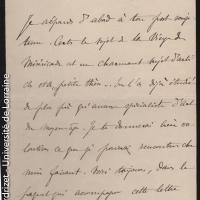 Je réponds d'abord à ton post-scrip
tum. Certes le sujet de la Vierge de
Miséricorde est un charmant sujet d'arti
cle ou petite thèse ... On l'a déjà étudié
de plus près qu'aucun spécialiste d'
du moyen-âge. Je te donnerai bien vo
lontiers ce que je pourrai rencontrer che
min faisant. Voici toujours, dans le
paquet qui accompagne cette lettre
drizet - Université de Lorraine